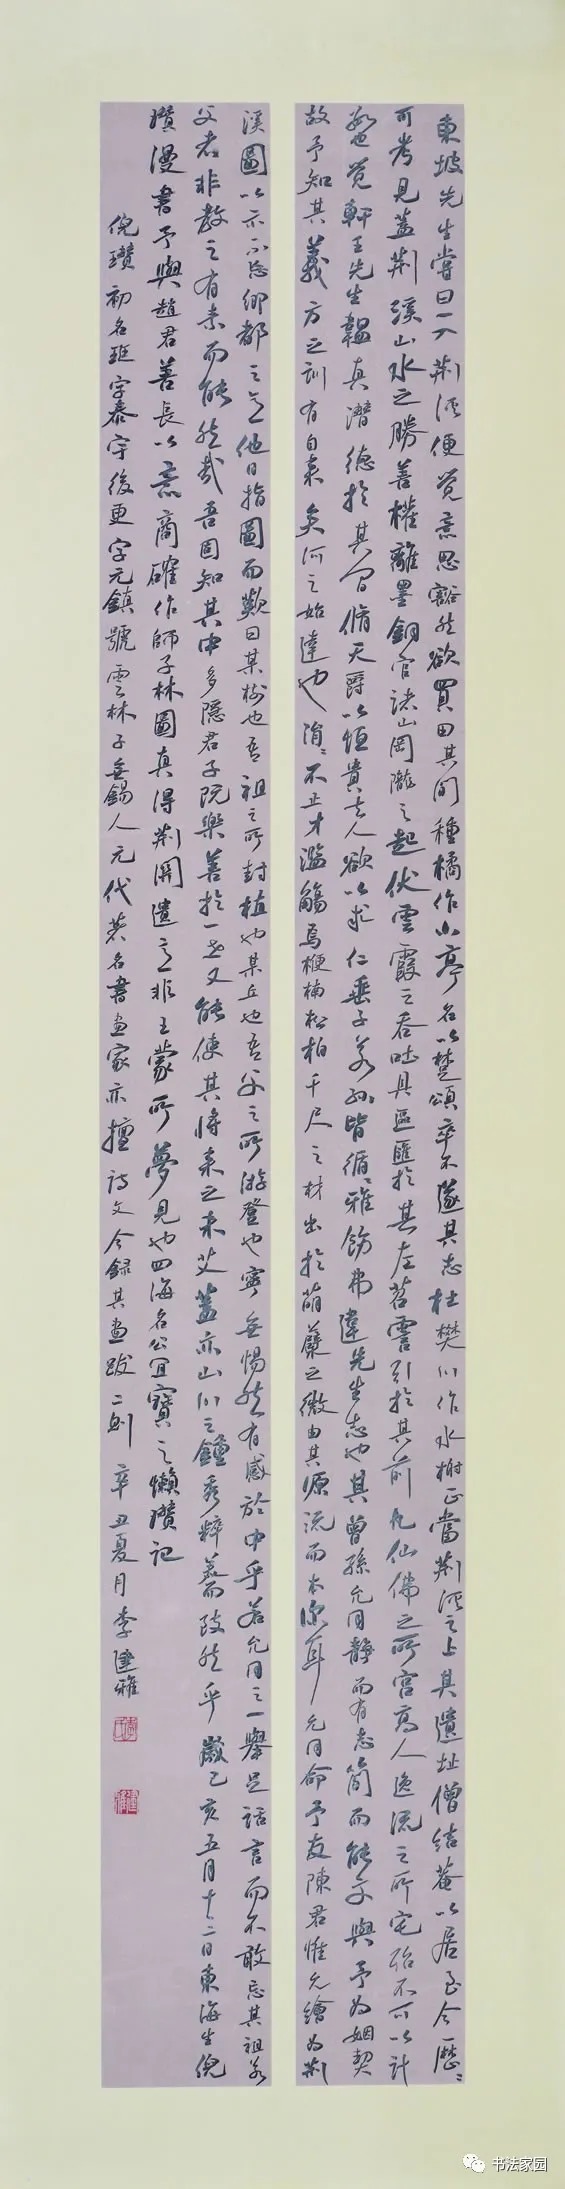 東坡先生嘗曰一入荆溪便覺意思豁然欲買田其間種橘作小亭名以楚頌卒不遂其志杜樊川作水榭正當荆溪之上其遺址僧結菴以居至今歷歷
可考見蓋荆溪山水之勝善權離墨銅官諸山岡隴之起伏雲霞之吞吐具區匯於其左苕霅引於其前凡仙佛之所宫高人逸流之所宅殆不可以計
數也覺軒王先生韞真潛德於其間脩天爵以恒貴去人欲以求仁垂子若孫皆循循雅飭弗違先生志也其曾孫允同静而有志簡而能文與予為姻契
故予知其義方之訓有自来矣河之始達也涓涓不止才濫觴焉楩楠松柏千尺之材出於萌蘖之微由其源流而本深耳允同命予友陳君惟允繪為荆
溪圖以示不忘鄉都之意他日指圖而歎曰某樹也吾祖之所封植也某丘也吾父之所游登也寧無惕然有感於中乎若允同之一舉足話言而不敢忘其祖若
父者非教之有素而能然哉吾固知其中多隱君子既樂善於一世又能使其將来之未艾蓋亦山川之鍾秀粹善而致然乎歲乙亥五月十二日東海生倪
瓚漫書予與趙君善長以意商確作師子林圖真得荆関遺意非王蒙所夢見也四海名公宜寶之懶瓚記
倪瓚初名珽字泰宇後更字元鎮號雲林子無錫人元代著名書画家亦擅詩文今録其画跋二則辛丑夏月李建雅
书法家园